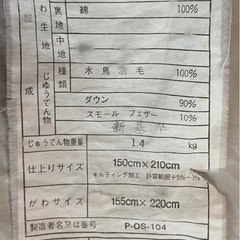 組成
わ生地
裏地
綿
100%
中地
じゅうてん物
種類
水鳥羽毛
100%
ダウン
90%
スモール フェザー
10%
新基準
じゅうてん物重量
1.4
kg
仕上りサイズ
150cm×210cm
キルティング加工 許容範囲+5%-3%
がわサイズ
155cm×220cm
製造者名又は番号
P-OS-104